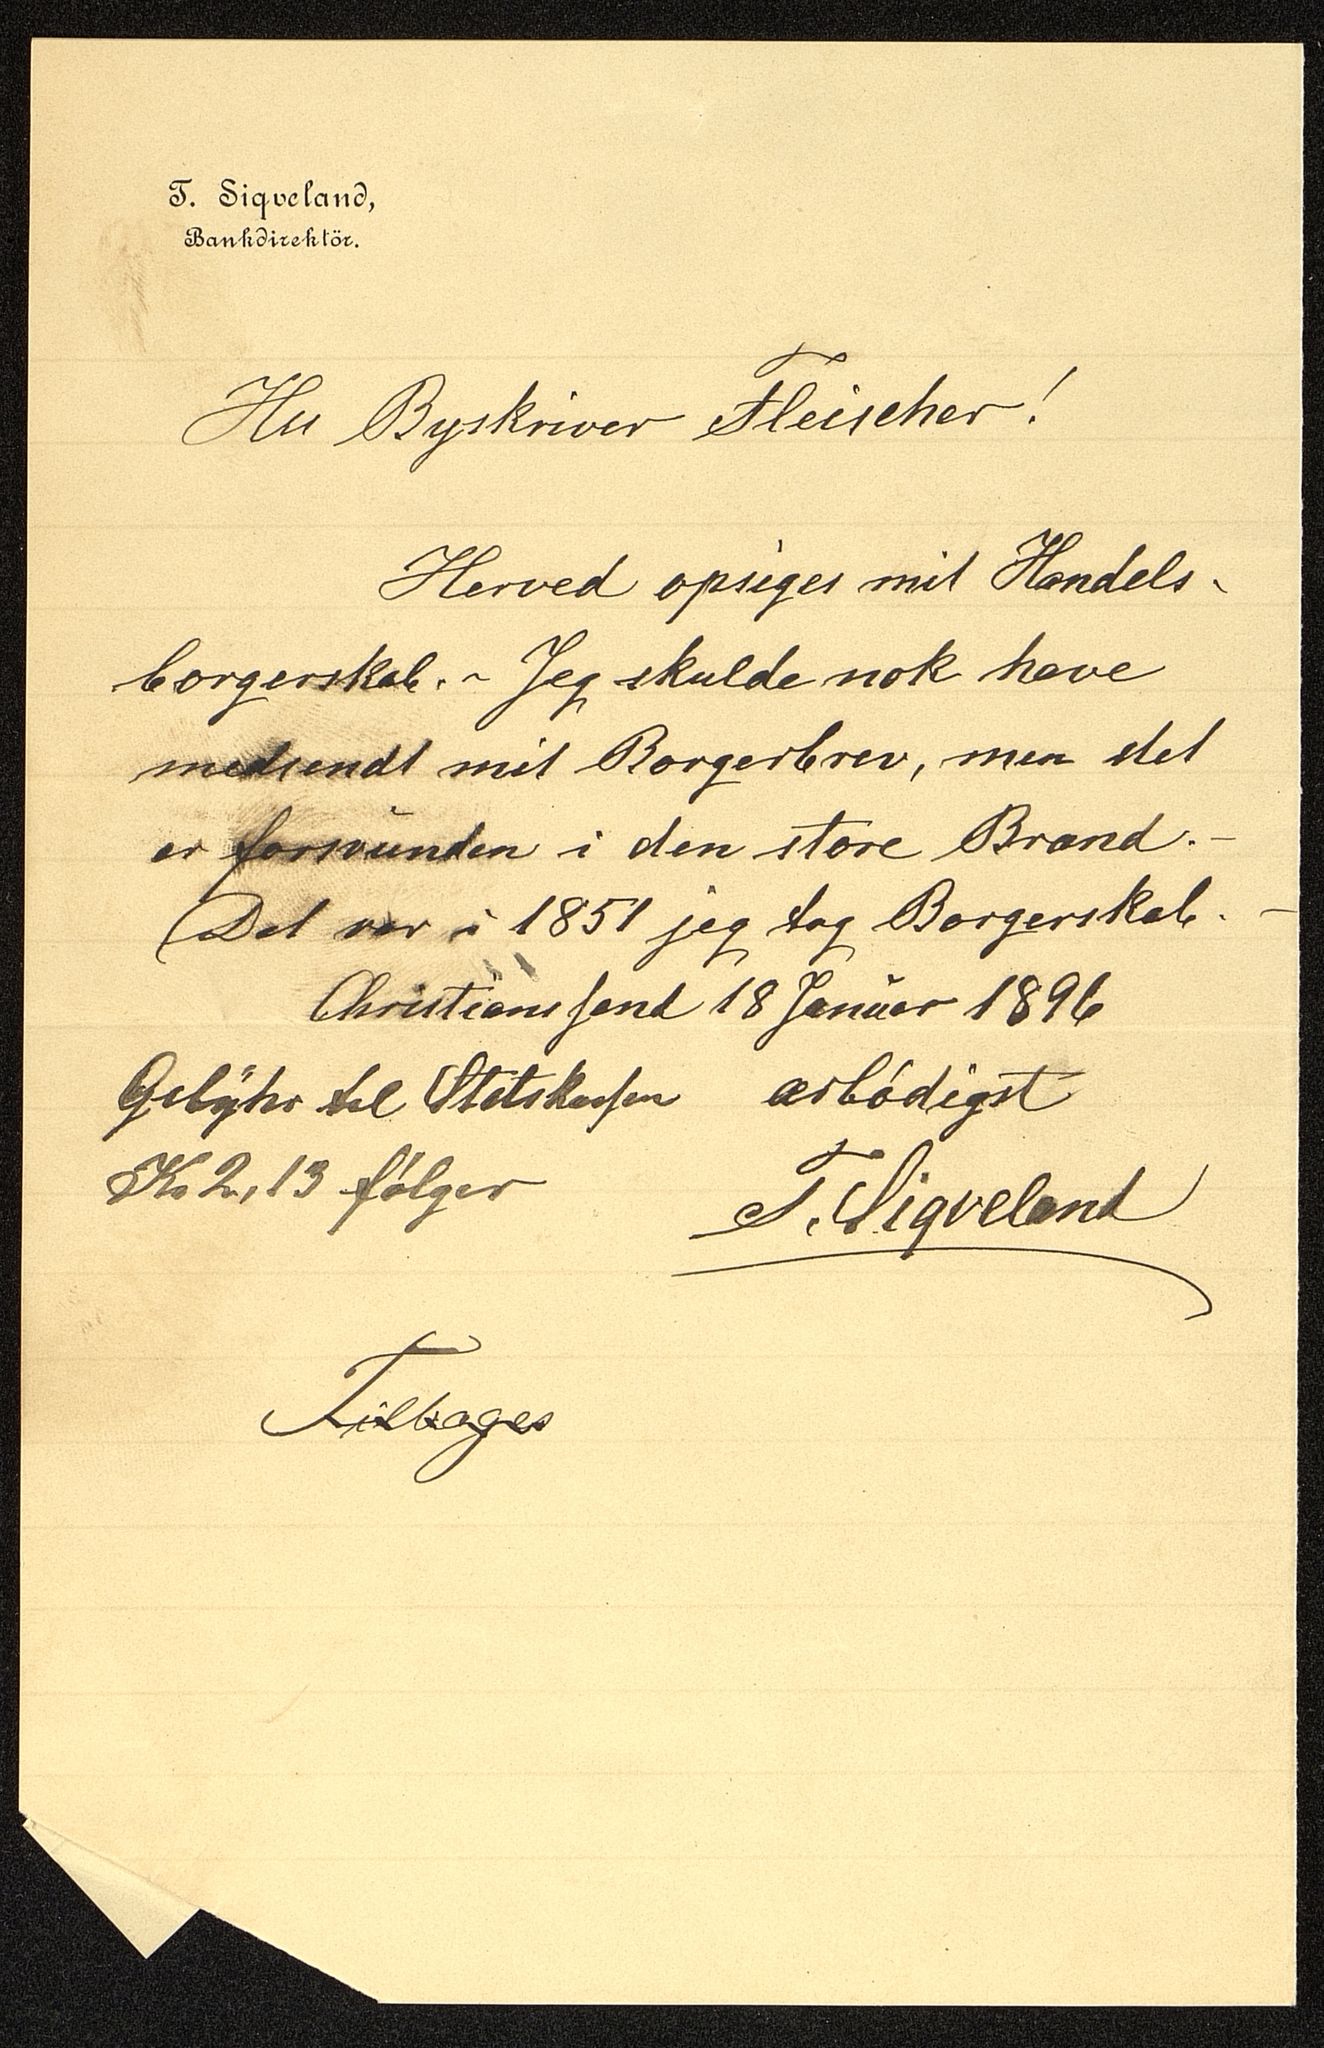 T. Siqveland,
Bankdirektör.
Hr Byskriver Fleischer!
Herved opsiges mit Handels-
borgerskab. - Jeg skulde nok have
medsendt mit Borgerbrev, men det
er forsvunden i den store Brand. -
Det var i 1851 jeg tog Borgerskab. -
Christianssand 18 Januar 1896
Gebyhr til Statskassen ærbödigst
Kr 2,13 følger
T. Siqveland